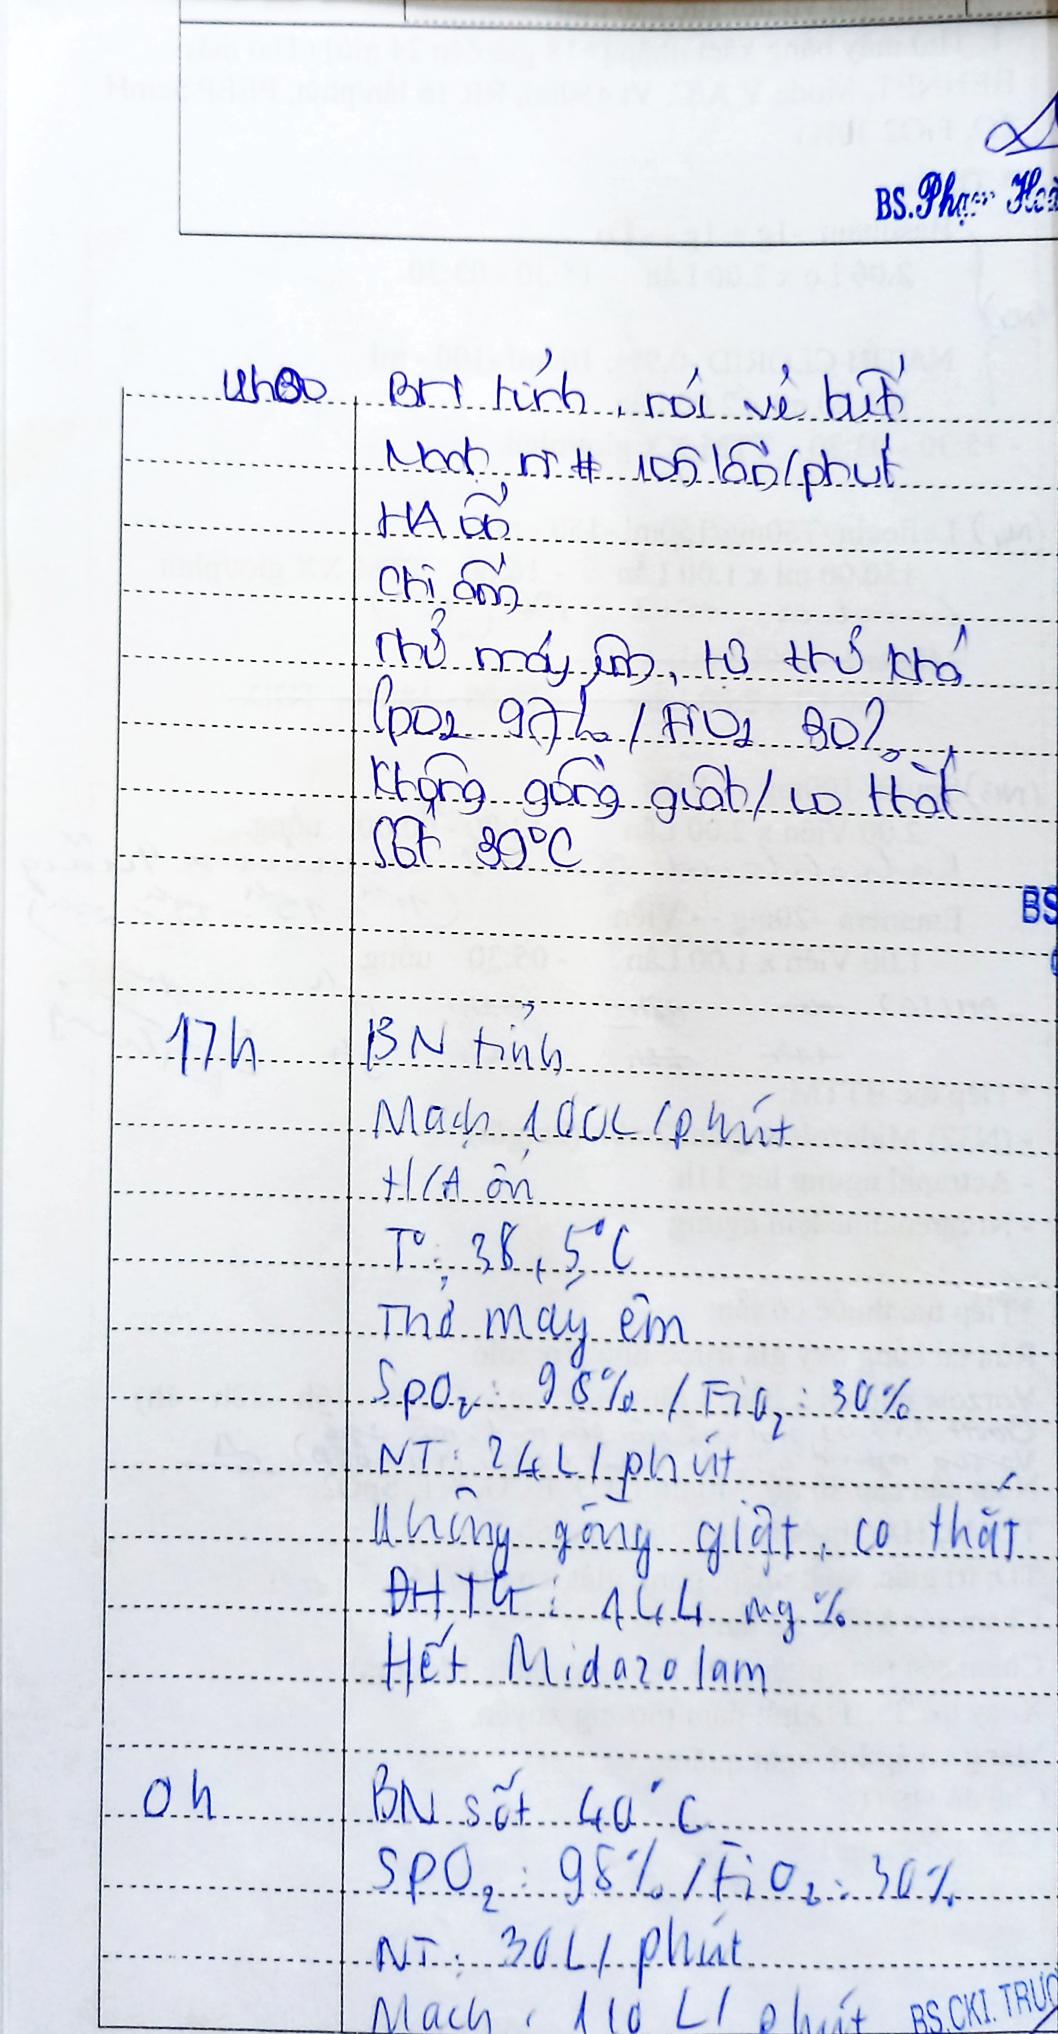 BS. Phạm Hoà
BN tỉnh, rối vẻ biết
Mạch rõ # 105 lần/phút
HA ổn
Chi ấm
Thở máy êm, tự thở khá
SpO2 97% / FiO2 30%
Không gồng giật / co thắt
Sốt 39°C
BS
17h BN tỉnh
Mạch 100L/phút
H/A ổn
T°: 38,5°C
Thở máy êm
SpO2: 98% / FiO2: 30%
NT: 24L/phút
Không gồng giật, co thắt
ĐHTG: 144 mg%
Hết Midazolam
0h BN sốt 40°C
SpO2: 98% / FiO2: 30%
NT: 30L/phút
Mạch: 110 L/phút
BS.CKI. TRƯƠ